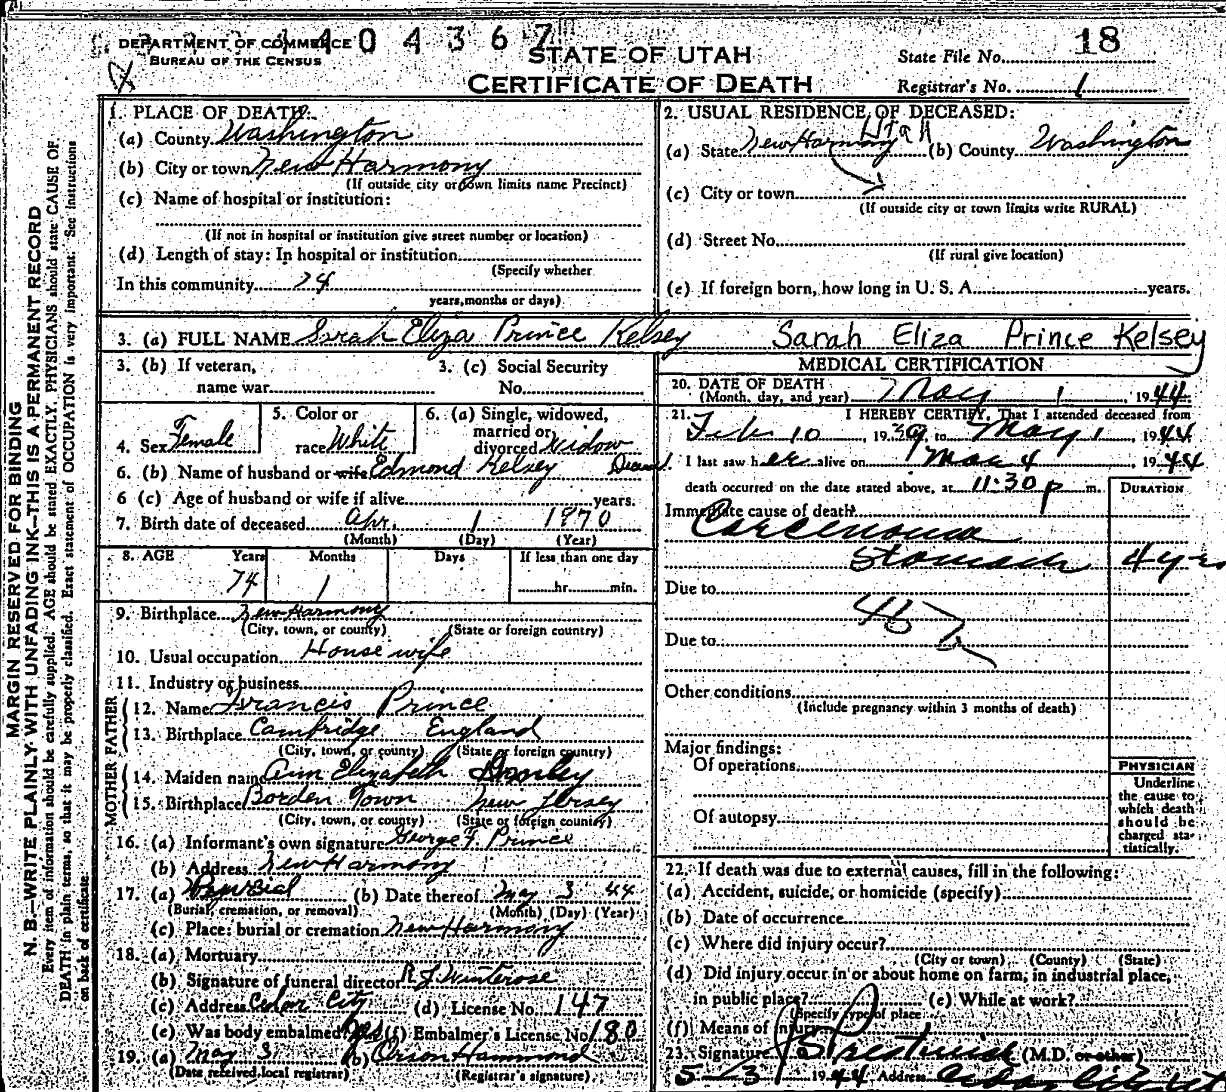 DEPARTMENT OF COMMERCE
BUREAU OF THE CENSUS
404367
STATE OF UTAH
CERTIFICATE OF DEATH
State File No. 18
Registrar's No. 1
MARGIN RESERVED FOR BINDING
N. B.—WRITE PLAINLY WITH UNFADING INK—THIS IS A PERMANENT RECORD
Every item of information should be carefully supplied. AGE should be stated EXACTLY. PHYSICIANS should state CAUSE OF
DEATH in plain terms, so that it may be properly classified. Exact statement of OCCUPATION is very important. See instructions
on back of certificate.
1. PLACE OF DEATH:
(a) County Washington
(b) City or town New Harmony
(If outside city or town limits name Precinct)
(c) Name of hospital or institution:
(If not in hospital or institution give street number or location)
(d) Length of stay: In hospital or institution
(Specify whether
In this community 74
years, months or days)
2. USUAL RESIDENCE OF DECEASED:
(a) State New Harmony Utah (b) County Washington
(c) City or town
(If outside city or town limits write RURAL)
(d) Street No.
(If rural give location)
(e) If foreign born, how long in U. S. A. years.
3. (a) FULL NAME Sarah Eliza Prince Kelsey Sarah Eliza Prince Kelsey
3. (b) If veteran,
name war
3. (c) Social Security
No.
4. Sex Female
5. Color or
race White
6. (a) Single, widowed,
married or
divorced Widow
6. (b) Name of husband or wife Edmond Kelsey
6 (c) Age of husband or wife if alive years.
7. Birth date of deceased Apr. 1 1870
(Month) (Day) (Year)
8. AGE Years Months Days If less than one day
74 1 hr. min.
9. Birthplace New Harmony
(City, town, or county) (State or foreign country)
10. Usual occupation House wife
11. Industry or business
FATHER
12. Name Francis Prince
13. Birthplace Cambridge England
(City, town, or county) (State or foreign country)
MOTHER
14. Maiden name Ann Elizabeth
15. Birthplace Borden Town New Jersey
(City, town, or county) (State or foreign country)
16. (a) Informant's own signature George F. Prince
(b) Address New Harmony
17. (a) (b) Date thereof May 3 44
(Burial, cremation, or removal) (Month) (Day) (Year)
(c) Place: burial or cremation New Harmony
18. (a) Mortuary
(b) Signature of funeral director
(c) Address Cedar City (d) License No. 147
(e) Was body embalmed Yes (f) Embalmer's License No. 180
19. (a) May 3 (b) Orson Hammond
(Date received local registrar) (Registrar's signature)
MEDICAL CERTIFICATION
20. DATE OF DEATH
(Month, day, and year) May 1, 1944
21. I HEREBY CERTIFY, That I attended deceased from
Feb 10, 1939, to May 1, 1944
I last saw her alive on May 4, 1944
death occurred on the date stated above, at 11:30 p m.
DURATION
Immediate cause of death
Carcenoma
Stomach 4 yrs
Due to
Due to
Other conditions
(Include pregnancy within 3 months of death)
Major findings:
Of operations
Of autopsy
PHYSICIAN
Underline
the cause to
which death
should be
charged sta-
tistically.
22. If death was due to external causes, fill in the following:
(a) Accident, suicide, or homicide (specify)
(b) Date of occurrence
(c) Where did injury occur?
(City or town) (County) (State)
(d) Did injury occur in or about home on farm, in industrial place,
in public place? (e) While at work?
(Specify type of place
(f) Means of injury
23. Signature (M.D. or other)
5-3 1944 Address Cedar City Ut